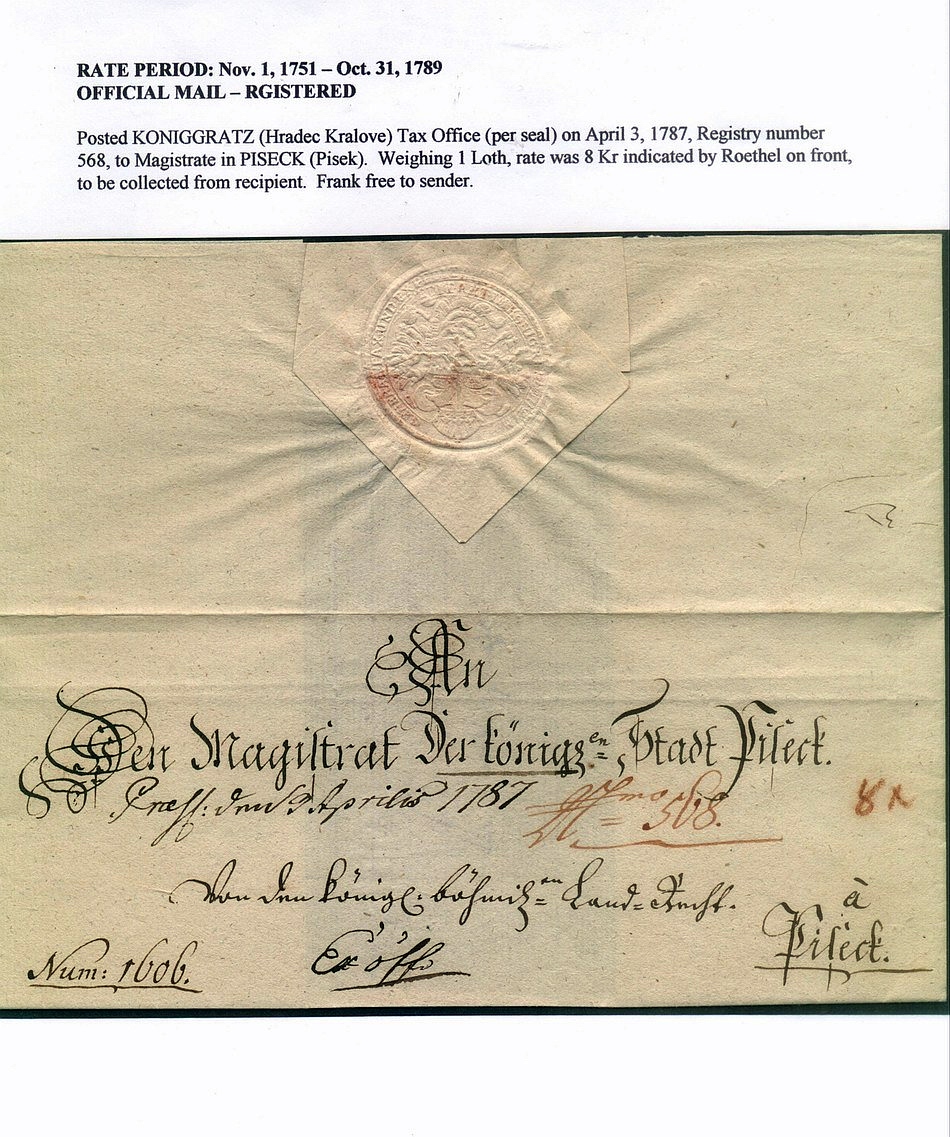 RATE PERIOD: Nov. 1, 1751 – Oct. 31, 1789
OFFICIAL MAIL – RGISTERED
Posted KONIGGRATZ (Hradec Kralove) Tax Office (per seal) on April 3, 1787, Registry number
568, to Magistrate in PISECK (Pisek). Weighing 1 Loth, rate was 8 Kr indicated by Roethel on front,
to be collected from recipient. Frank free to sender.
An
Den Magistrat Der königl:en Stadt Piseck.
Praes: den 9 Aprilis 1787
568.
8
Von den königl: böhmis:en Land-Recht.
à
Piseck.
Ex offo
Num: 1606.